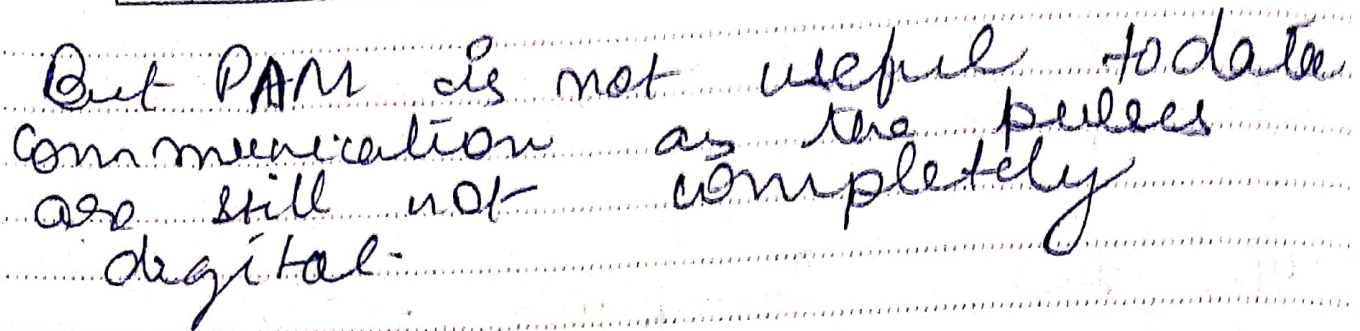 But PAM is not useful to data
communication as the pulses
are still not completely
digital.